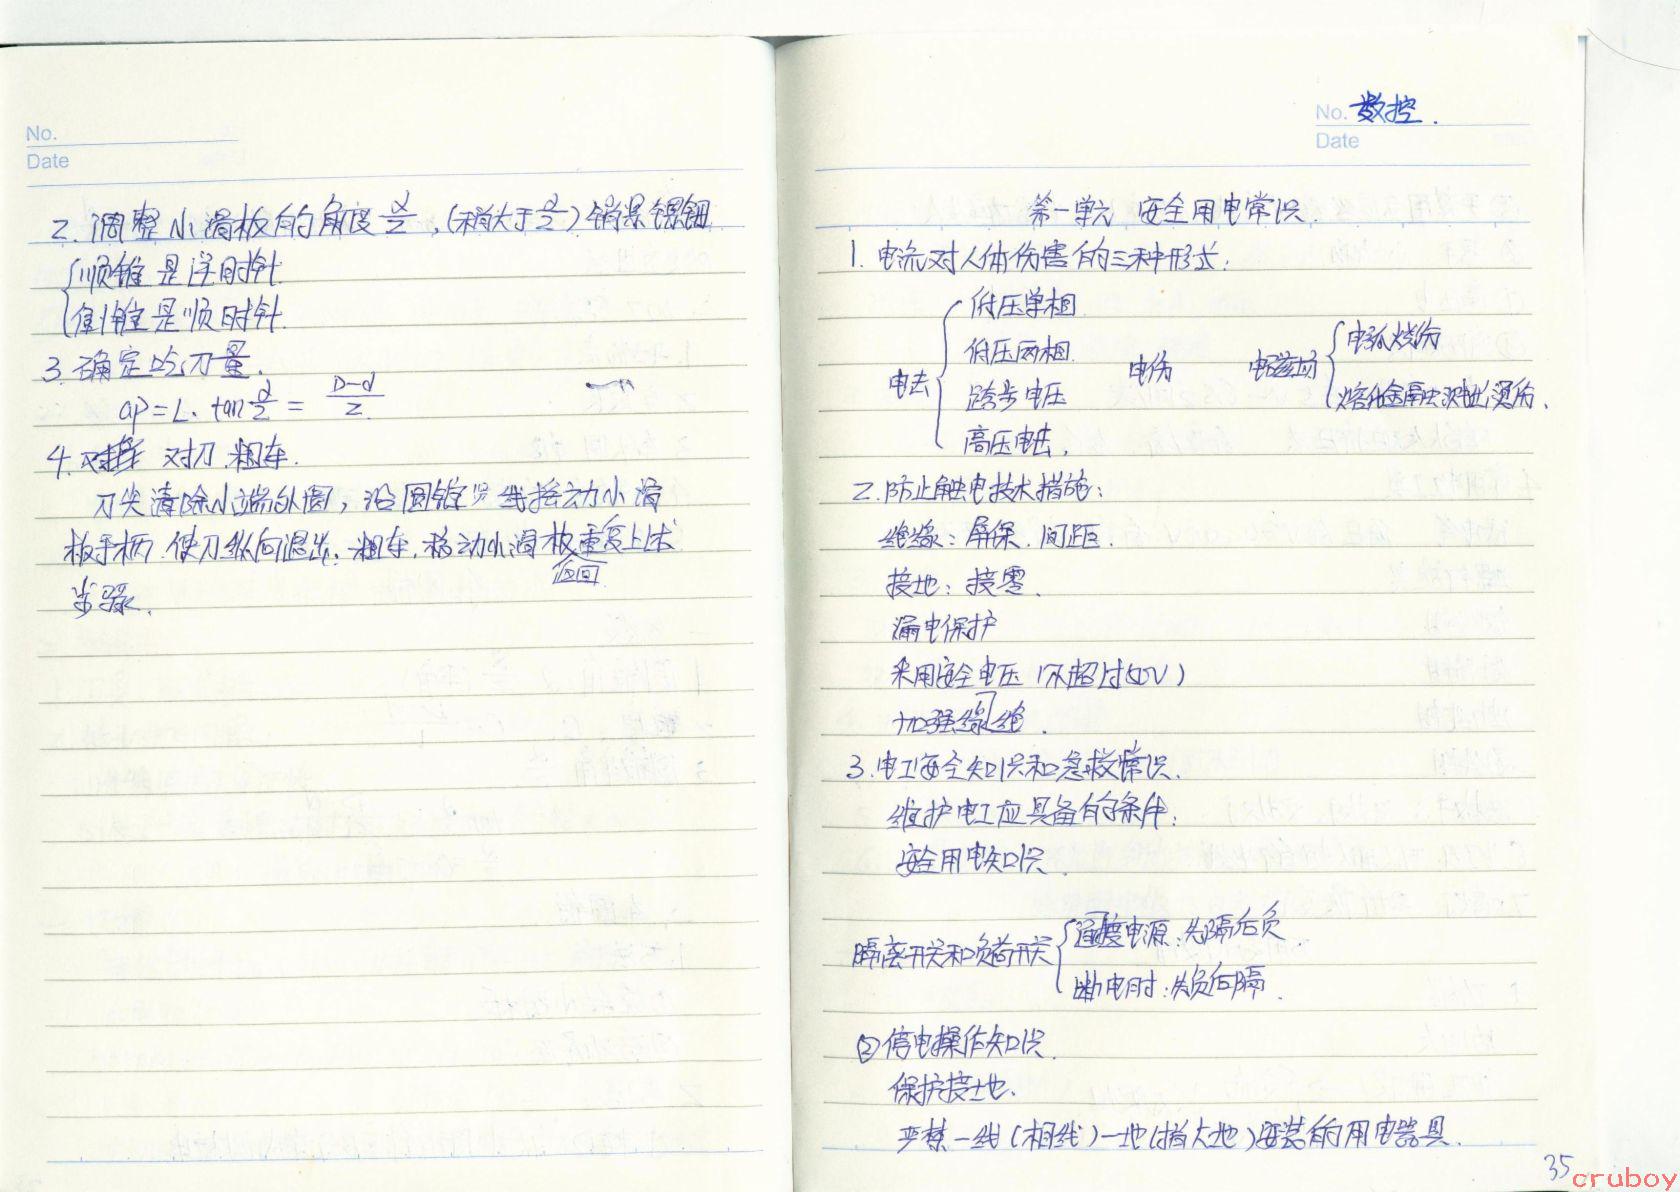 No.
Date
2. 调整小滑板的角度 α/2,(稍大于 α/2) 锁紧螺钮
顺锥是逆时针
倒锥是顺时针.
3. 确定吃刀量.
ap = L. tan α/2 = D-d/2
4. 对刀.粗车.
刀尖清除小端外圆, 沿圆锥 线摇动小滑
板手柄.使刀纵向退出. 粗车,移动小滑板重复上述
返回
步骤.
No. 数控.
Date
第一单元 安全用电常识.
1. 电流对人体伤害的三种形式:
电击
低压单相
低压两相
跨步电压
高压电击.
电伤
电磁场
电弧烧伤
熔化金属 溅出烫伤.
2.防止触电技术措施:
绝缘: 屏保. 间距.
接地: 接零.
漏电保护
采用安全电压 (不超过50V)
加强缘绝.
3.电工安全知识和急救常识.
维护电工应具备的条件:
安全用电知识.
隔离开关和负荷开关
电源:先隔后负
断电时:先负后隔.
② 停电操作知识.
保护接地.
严禁一线(相线)一地(指大地)安装的用电器具.
35
cruboy